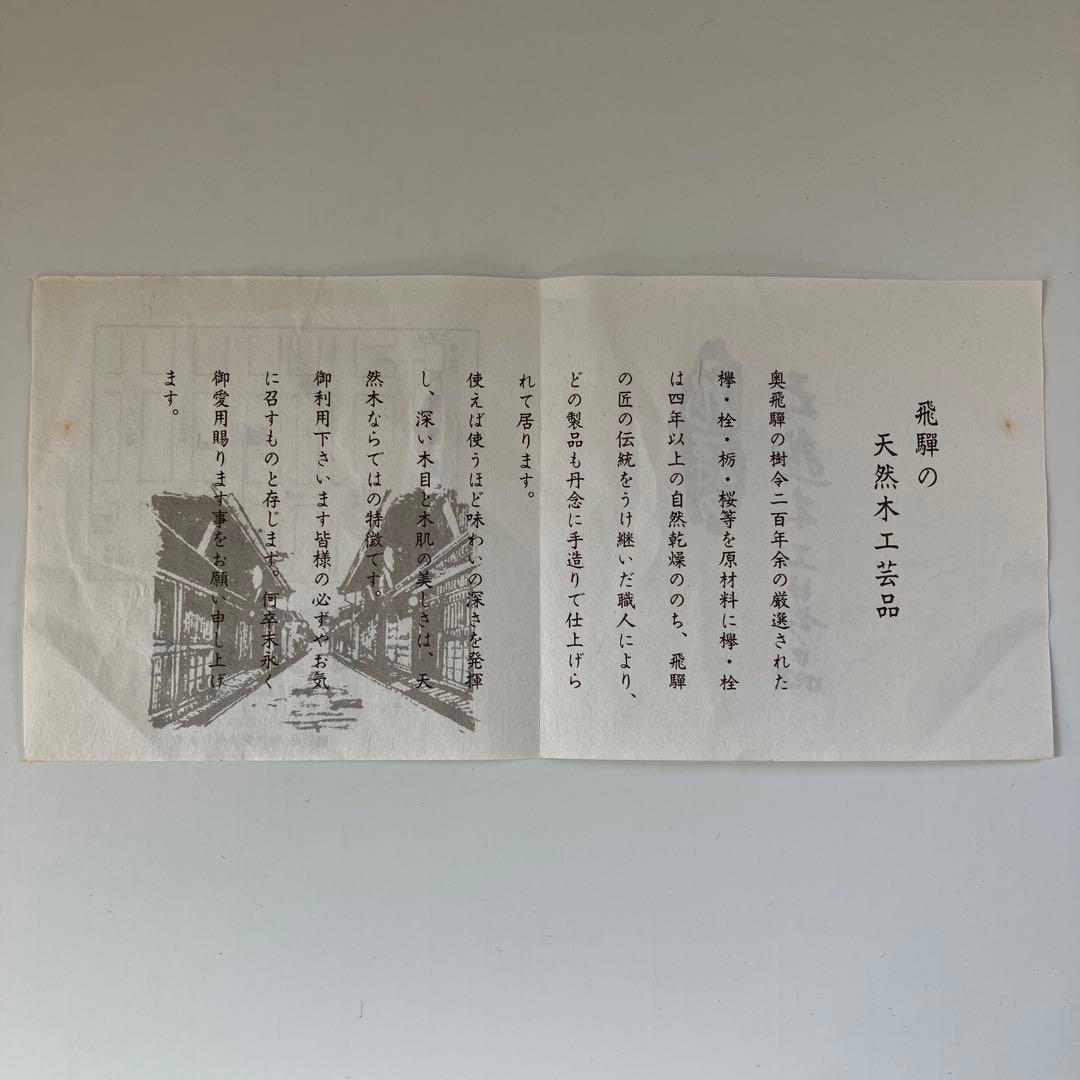 飛騨の
天然木工芸品
奥飛騨の樹令二百年余の厳選された
欅・栓・栃・桜等を原材料に欅・栓
は四年以上の自然乾燥ののち、飛騨
の匠の伝統をうけ継いだ職人により、
どの製品も丹念に手造りで仕上げら
れて居ります。
使えば使うほど味わいの深さを発揮
し、深い木目と木肌の美しさは、天
然木ならではの特徴です。
御利用下さいます皆様の必ずやお気
に召すものと存じます。何卒末永く
御愛用賜ります事をお願い申し上げ
ます。